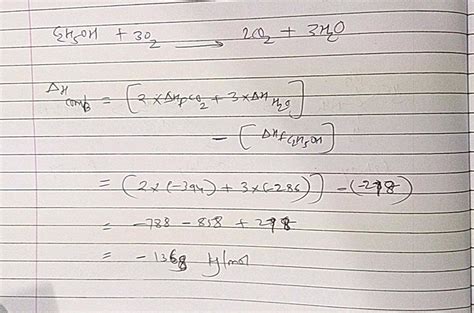 C₂H₅OH + 3O₂ → 2CO₂ + 3H₂O
ΔH comb = [2×ΔHf CO₂ + 3×ΔH H₂O]
- [ΔHf C₂H₅OH]
= (2×(-394) + 3×(-286)] - (-278)
= -788 - 858 + 278
= -1368 kJ/mol